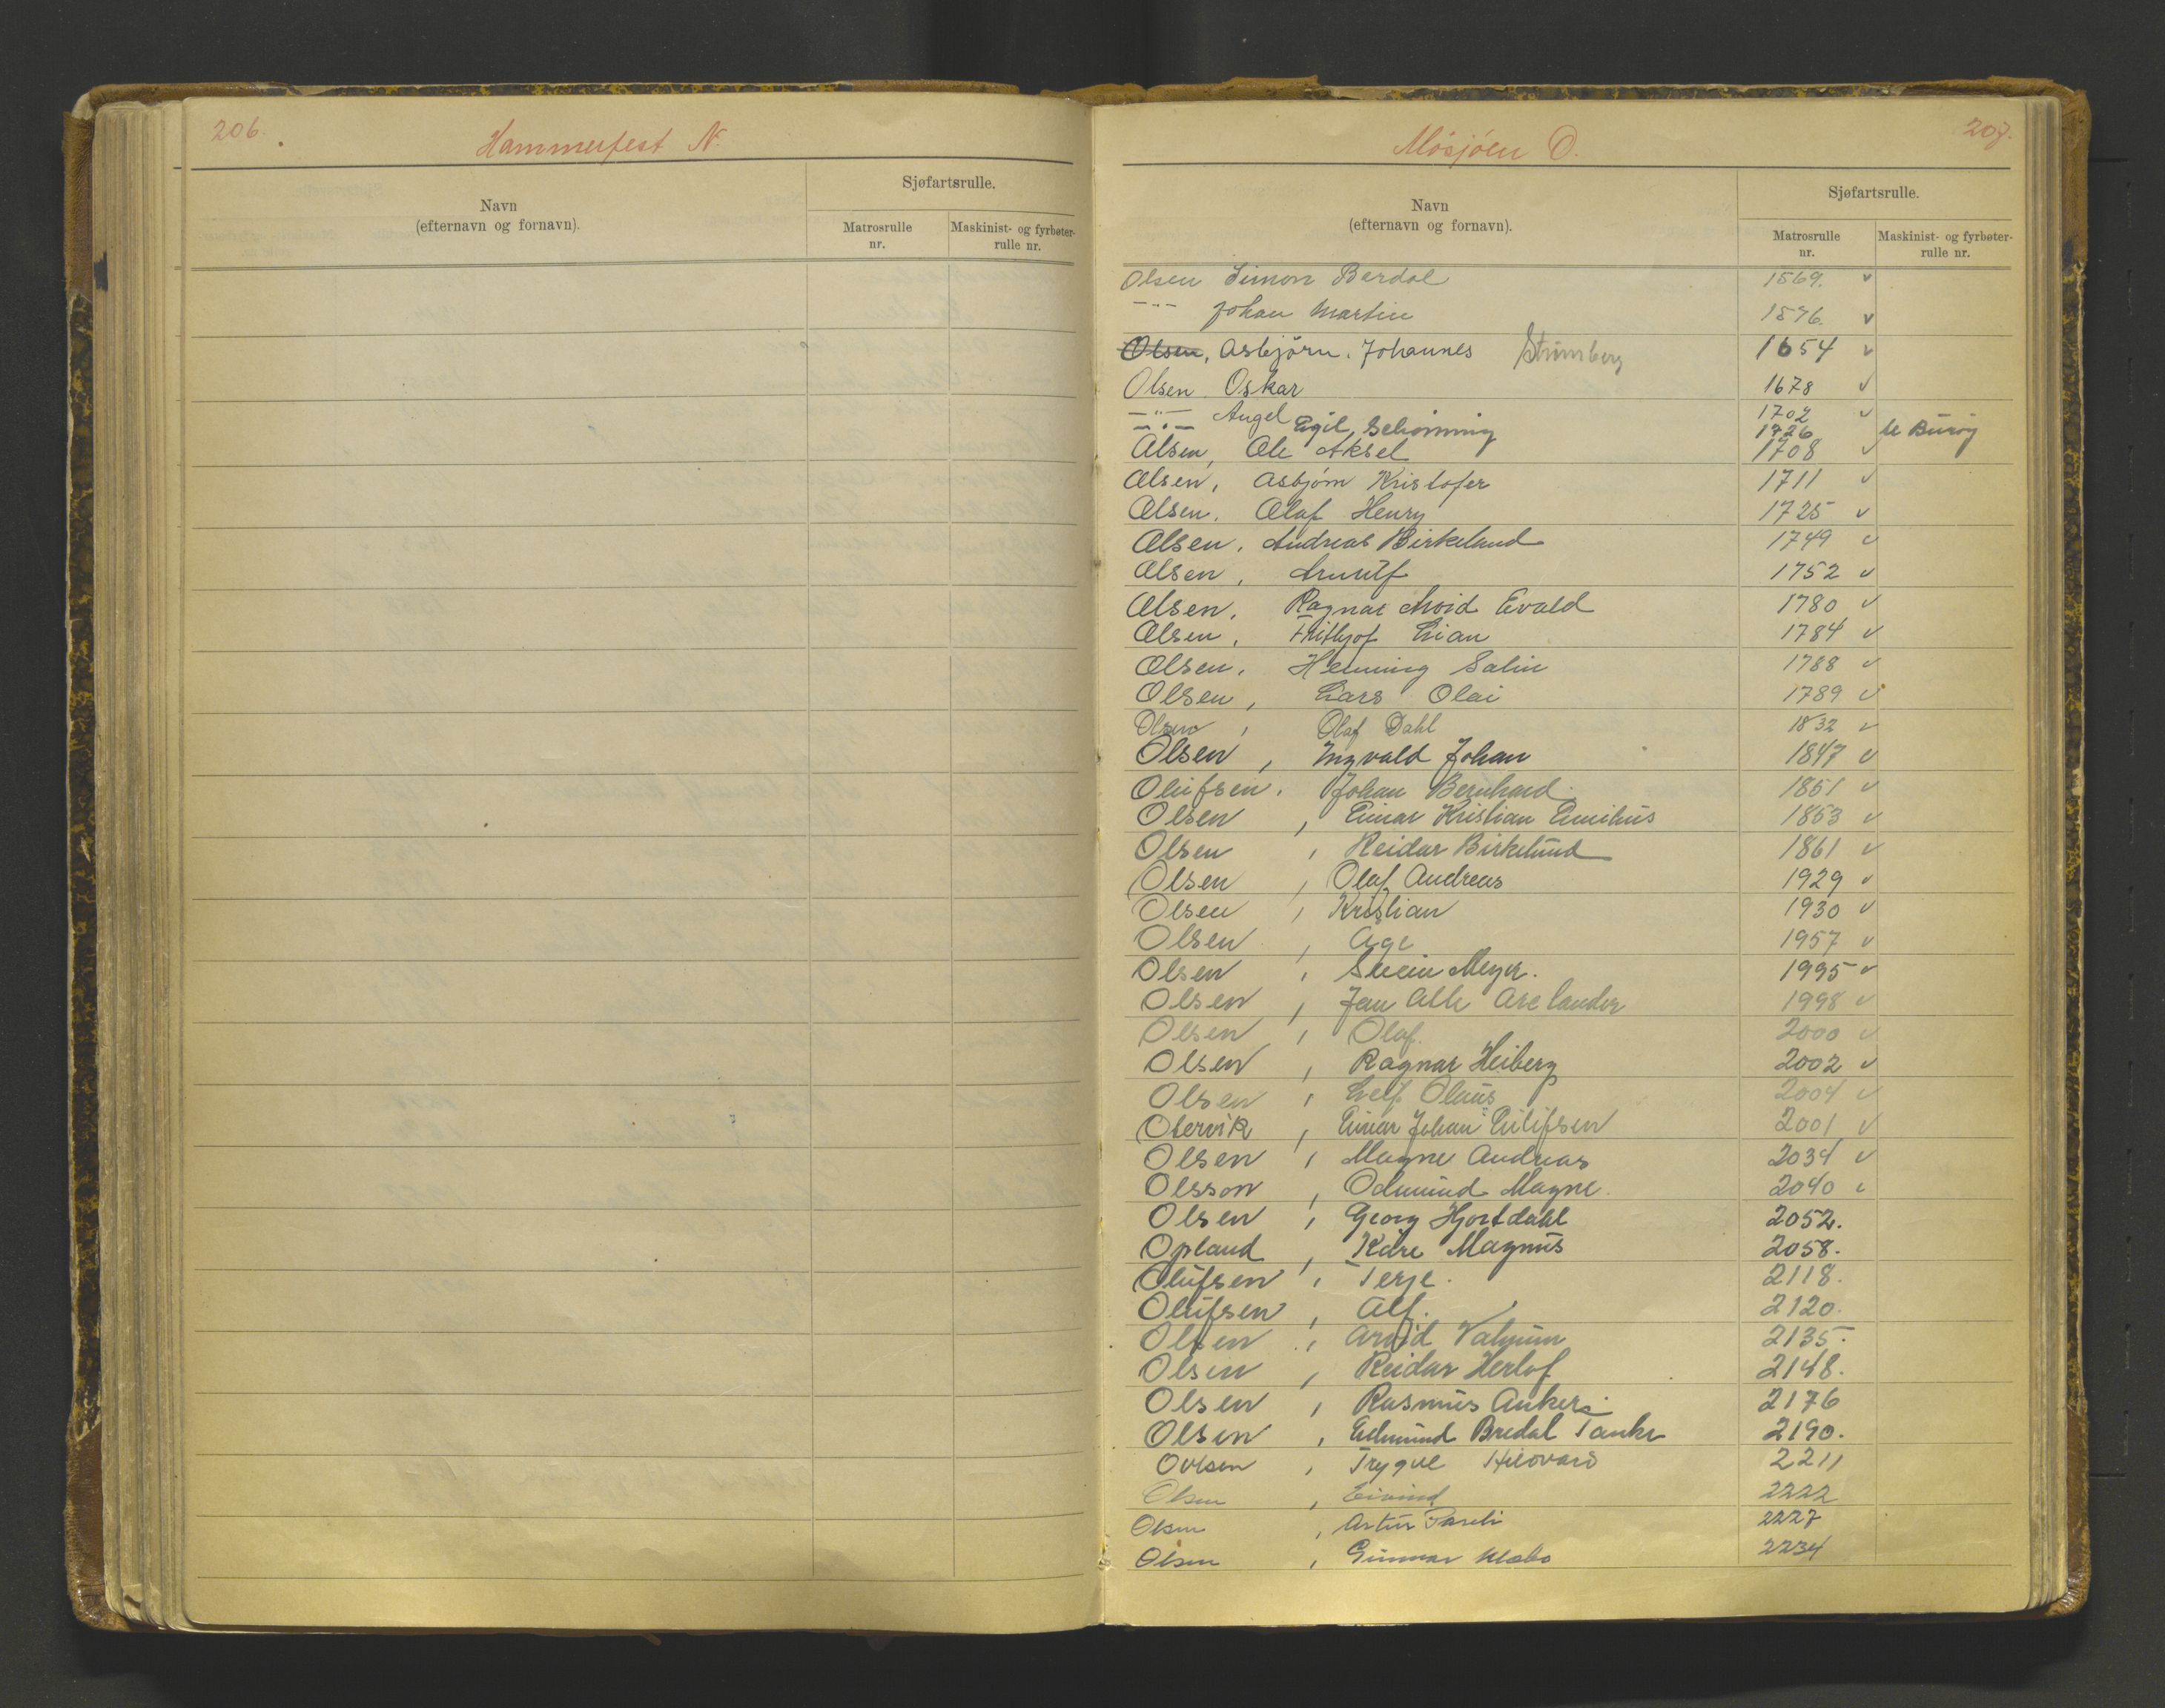 206.
Hammerfest N.
Navn
(efternavn og fornavn).
Sjøfartsrulle.
Matrosrulle
nr.
Maskinist- og fyrbøter-
rulle nr.
207.
Mosjøen O.
Navn
(efternavn og fornavn).
Sjøfartsrulle.
Matrosrulle
nr.
Maskinist- og fyrbøter-
rulle nr.
Olsen Simon Bardal 1569. v
—"— Johan Martin 1576. v
Olsen, Asbjörn. Johannes Strømberg 1654 v
Olsen Oskar 1678 v
—"— Angel 1702 v
—"— Egil, 1726
Olsen, Ole Aksel 1708 v
Olsen, Asbjørn Kristofer 1711 v
Olsen. Olaf Henry 1725 v
Olsen. Andreas Birkelund 1749 v
Olsen, Arnulf 1752 v
Olsen. Ragnar Arvid Evald 1780 v
Olsen, Frithjof Lian 1784 v
Olsen. Henning Salin 1788 v
Olsen, Lars Olai 1789 v
Olsen, Olaf Dahl 1832 v
Olsen, Ingvald Johan 1847 v
Olufsen. Johan Bernhard. 1851 v
Olsen, Einar Kristian Emilius 1853 v
Olsen, Reidar Birkelund 1861 v
Olsen, Olaf Andreas 1929 v
Olsen, Kristian 1930 v
Olsen, Age 1957 v
Olsen, Svein Meyer. 1995 v
Olsen, Jan 1998 v
Olsen, Olaf. 2000 v
Olsen, Ragnar Heiberg 2002 v
Olsen, Leif Olaus 2004 v
Otervik, Einar Johan Eilifsen 2001 v
Olsen, Magne Andreas 2034 v
Olsson, Odmund Magne. 2040 v
Olsen, Georg Hjortdahl 2052.
Opland, Kåre Magnus 2058.
Olufsen, Terje. 2118.
Olufsen, Alf. 2120.
Olsen, Arvid 2135.
Olsen, Reidar Herlof 2148.
Olsen, Rasmus Anker 2176
Olsen, Edmund Bredal Tanke 2190.
Trygve 2211
Olsen, Eivind 2222
Olsen, Artur 2227
Olsen, Gunnar 2234